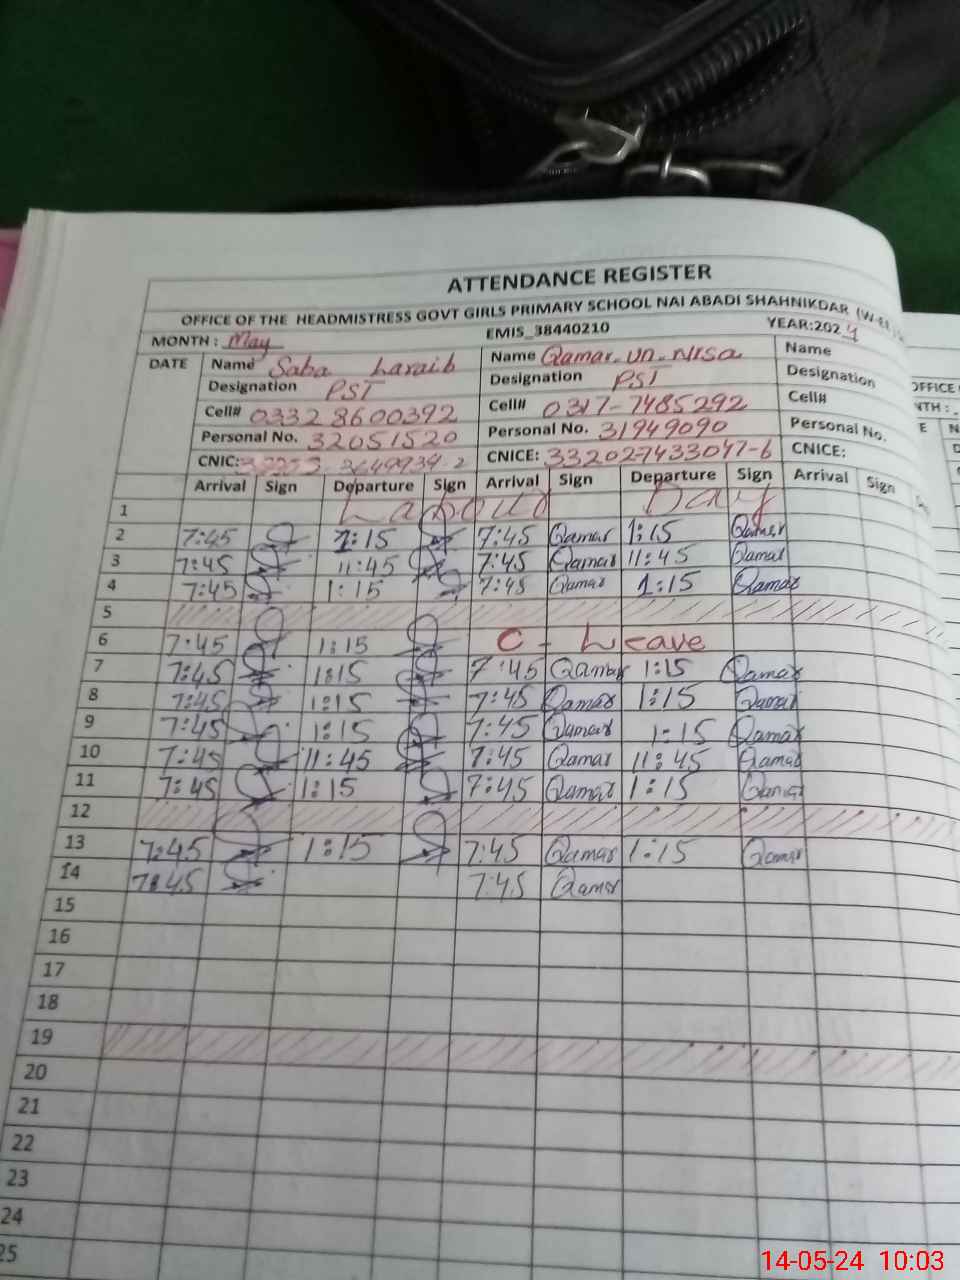 ATTENDANCE REGISTER
OFFICE OF THE HEADMISTRESS GOVT GIRLS PRIMARY SCHOOL NAI ABADI SHAHNIKDAR
MONTH: May EMIS_38440210 YEAR:2024
DATE Name Saba Laraib Name Qamar-un-Nisa Name
Designation PST Designation PST Designation
Cell# 0332 8600392 Cell# 0317-7485292 Cell#
Personal No. 32051520 Personal No. 31949090 Personal No.
CNIC: CNICE: 332027433047-6 CNICE:
Arrival Sign Departure Sign Arrival Sign Departure Sign Arrival Sign
1 Labour Day
2 7:45 1:15 7:45 Qamar 1:15 Qamar
3 7:45 11:45 7:45 Qamar 11:45 Qamar
4 7:45 1:15 7:45 Qamar 1:15 Qamar
5
6 7:45 1:15 C - Leave
7 7:45 1:15 7:45 Qamar 1:15 Qamar
8 7:45 1:15 7:45 Qamar 1:15 Qamar
9 7:45 1:15 7:45 Qamar 1:15 Qamar
10 7:45 11:45 7:45 Qamar 11:45 Qamar
11 7:45 1:15 7:45 Qamar 1:15 Qamar
12
13 7:45 1:15 7:45 Qamar 1:15 Qamar
14 7:45 7:45 Qamar
15
16
17
18
19
20
21
22
23
24
25
OFFICE
14-05-24 10:03